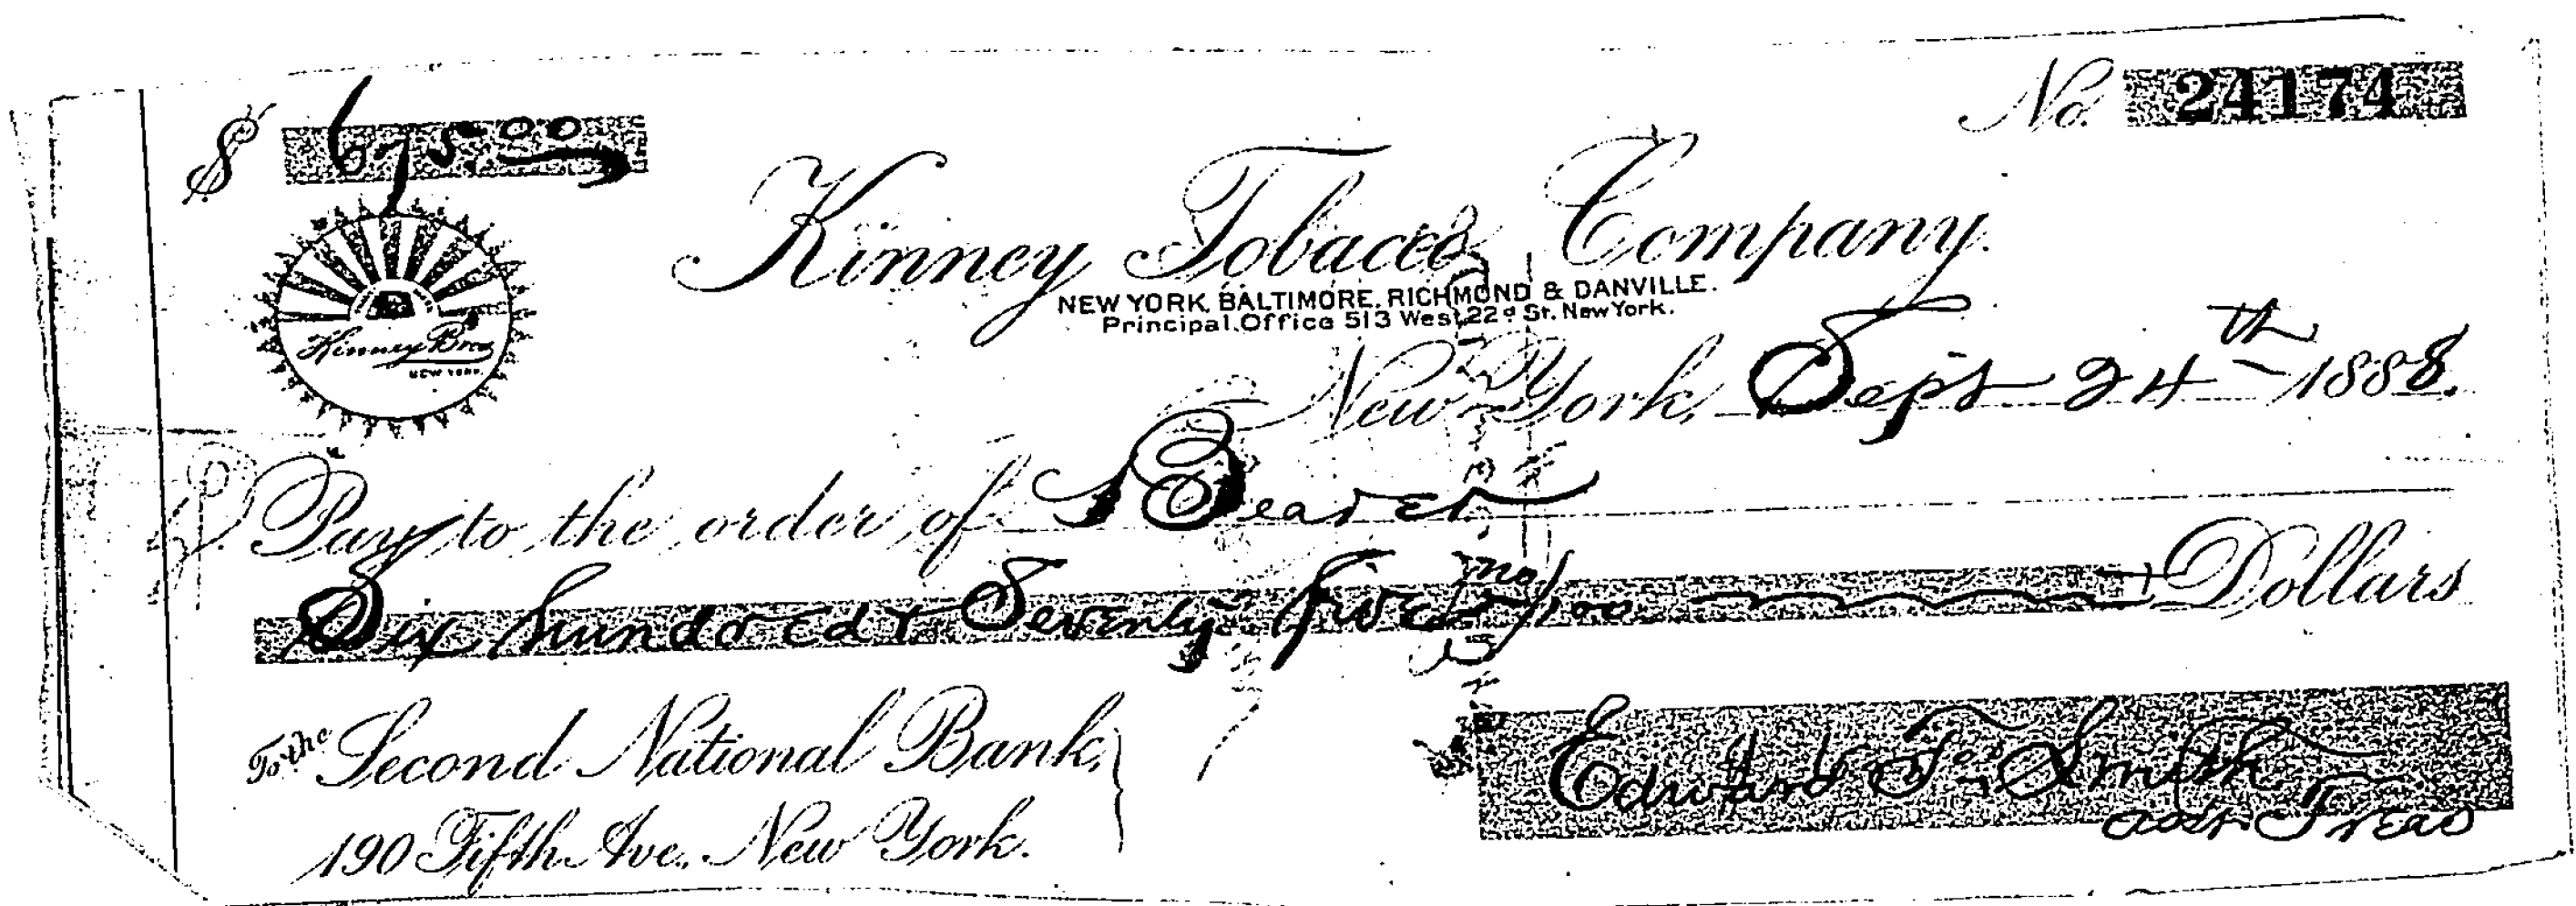 $ 675.00
No. 24174
Kinney Tobacco Company.
NEW YORK, BALTIMORE, RICHMOND & DANVILLE.
Principal Office 513 West 22d St. New York.
Kinney Bros
NEW YORK.
New York, Sept 24th 1888.
Pay to the order of Bearer
Six hundred & Seventy five & no/100 Dollars
To the Second National Bank,
190 Fifth Ave. New York.
Edward F. Smith
asst Treas